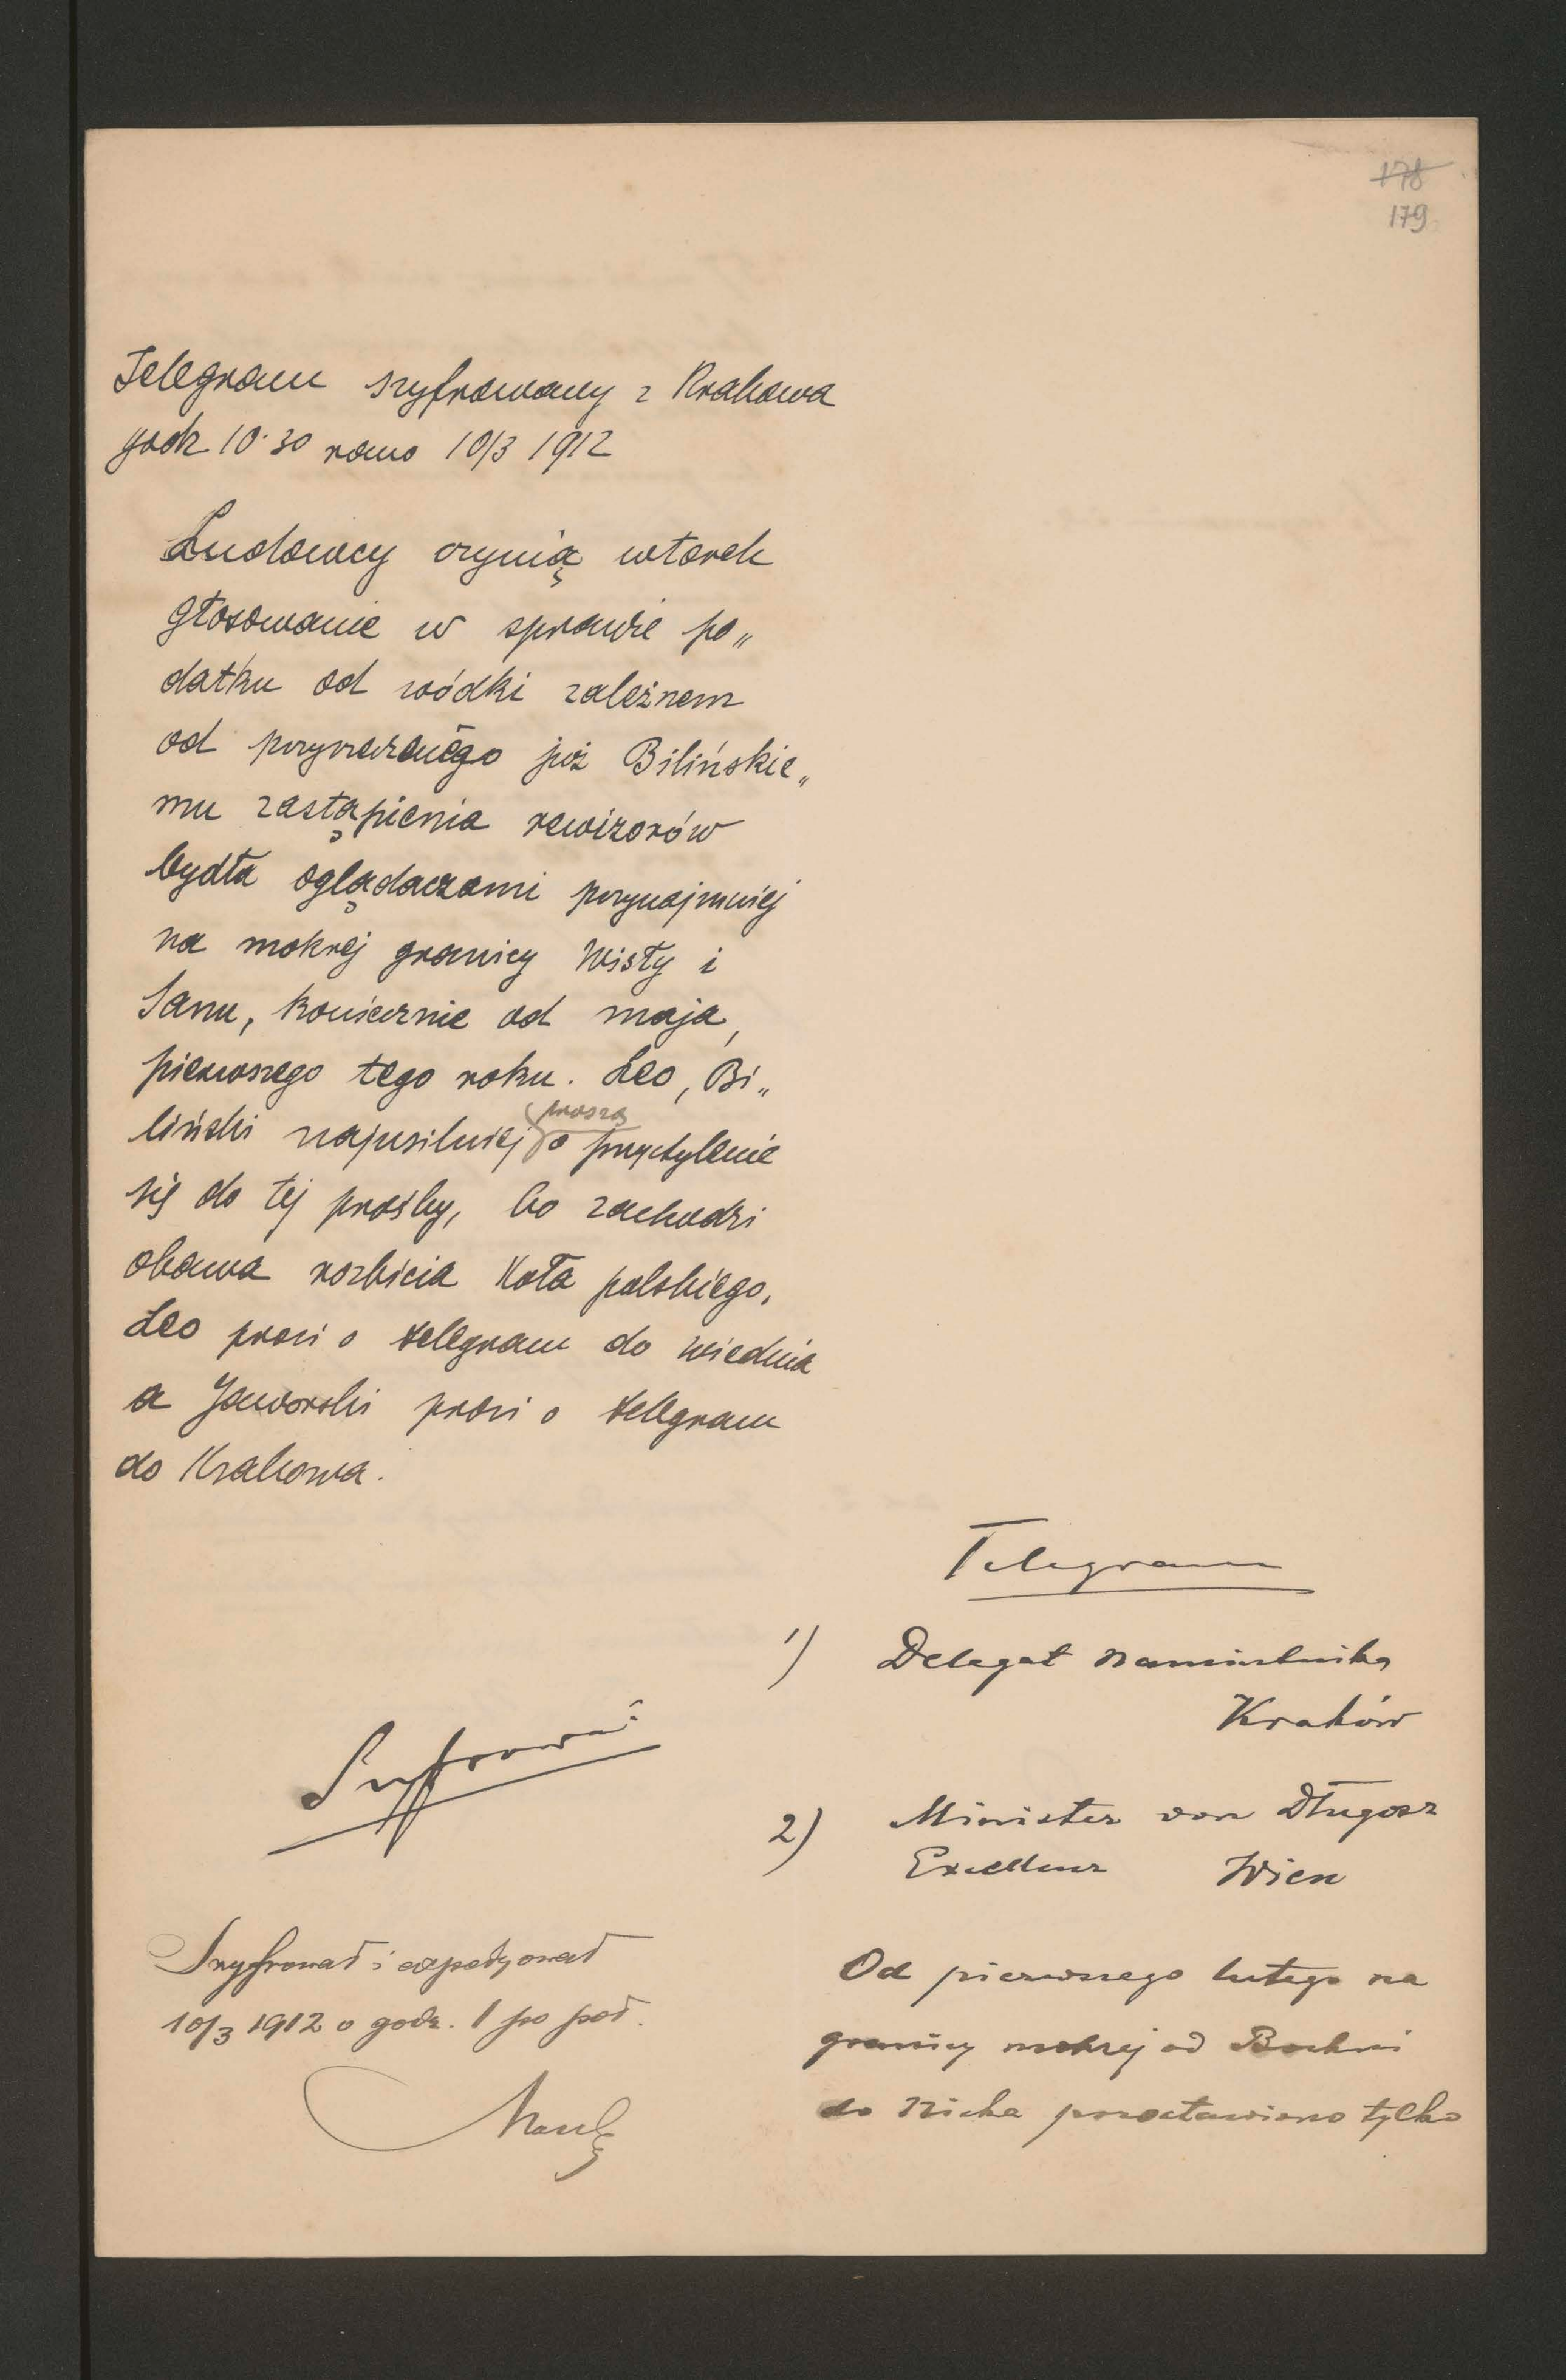 178
179
Telegram szyfrowany z Krakowa
godz 10·30 rano 10/3 1912
Ludowcy czynią wtorek
głosowanie w sprawie po„
datku od wódki zależnem
od przyrzeczonego już Bilińskie„
mu zastąpienia rewizorów
bydła oglądaczami przynajmniej
na mokrej granicy Wisły i
Sanu, koniecznie od maja,
pierwszego tego roku. Leo, Bi„
liński najusilniej proszą o przychylenie
się do tej prośby, bo zachodzi
obawa rozbicia Koła polskiego,
Leo prosi o telegram do Wiednia
a Jaworski prosi o telegram
do Krakowa.
Telegram
1) Delegat Namiestnika
Kraków
Szyfrować
2) Minister von Długosz
Excellenz Wien
Szyfrował i expedyował
10/3 1912 o godz. 1 po poł.
Od pierwszego lutego na
granicy mokrej od Bochni
do Niska pozostawiono tylko